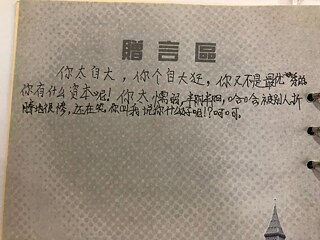 贈言區
你太自大，你个自大狂，你又不是最优秀的
你有什么资本呢！你太懦弱，半阴半阳，哈哈被别人折
还在笑，你叫我说你什么好呢！？呵呵。